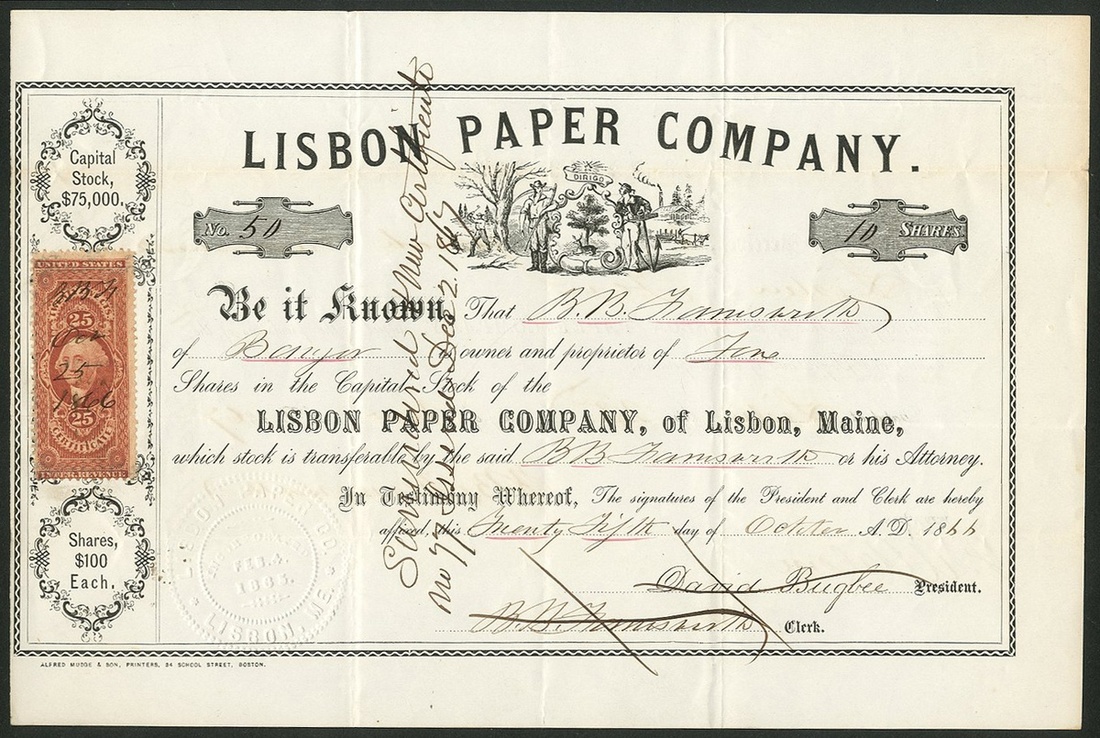 LISBON PAPER COMPANY.
Capital
Stock,
$75,000.
DIRIGO
No. 50
10 SHARES
Be it Known, That B. B. Farnsworth
of Bangor is owner and proprietor of Tenn
Shares in the Capital Stock of the
LISBON PAPER COMPANY, of Lisbon, Maine,
which stock is transferable by the said B B Farnsworth or his Attorney.
In Testimony Whereof, The signatures of the President and Clerk are hereby
affixed, this Twenty Fifth day of A.D. 1866
David Bugbee President.
B. B. Farnsworth Clerk.
Surrendered & New Certificate
No 97 Issued Dec 2. 1867
UNITED STATES
25 25
Oct
25
1866
25 25
CERTIFICATE
INTER. REVENUE
Shares,
$100
Each.
LISBON PAPER CO.
FEB. 4.
1865.
LISBON, ME.
ALFRED MUDGE & SON, PRINTERS, 34 SCHOOL STREET, BOSTON.